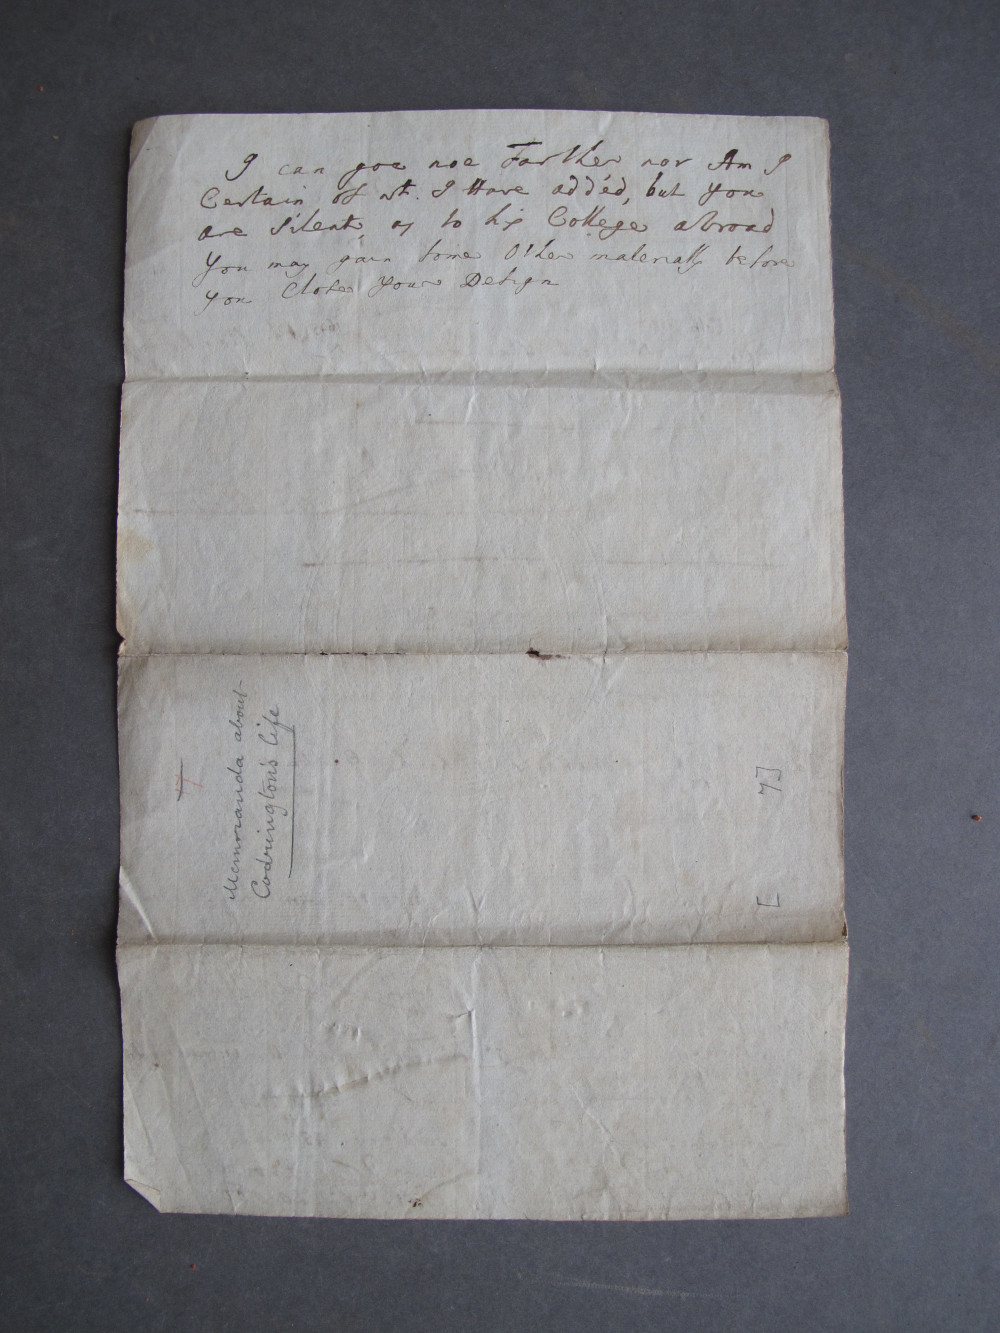 I can goe noe Farther nor Am I
Certain of wt. I Have add'ed, but you
are Silent, as to his College abroad
you may gain some Other materialls before
you Close your Design
Memoranda about
Codrington's life
17
[ 7]